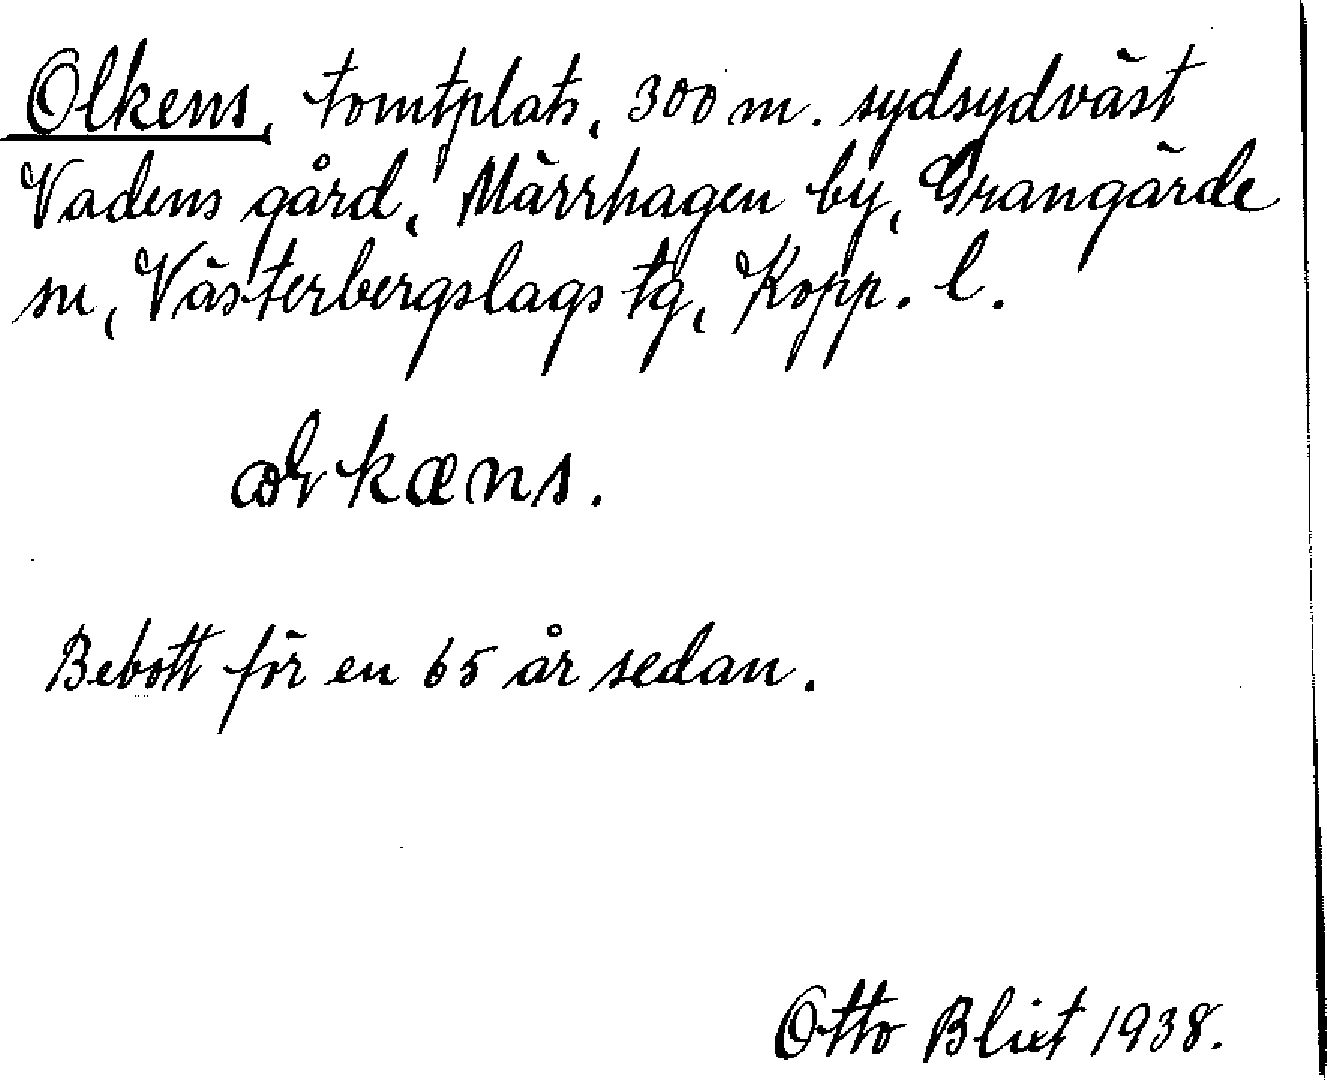 Olkens, tomtplats, 300 m. sydsydväst
Vadens gård, Märrhagen by, Grangärde
sn, Västerbergslags tg, Kopp. l.
kæns.
Bebott för en 65 år sedan.
Otto Blixt 1938.